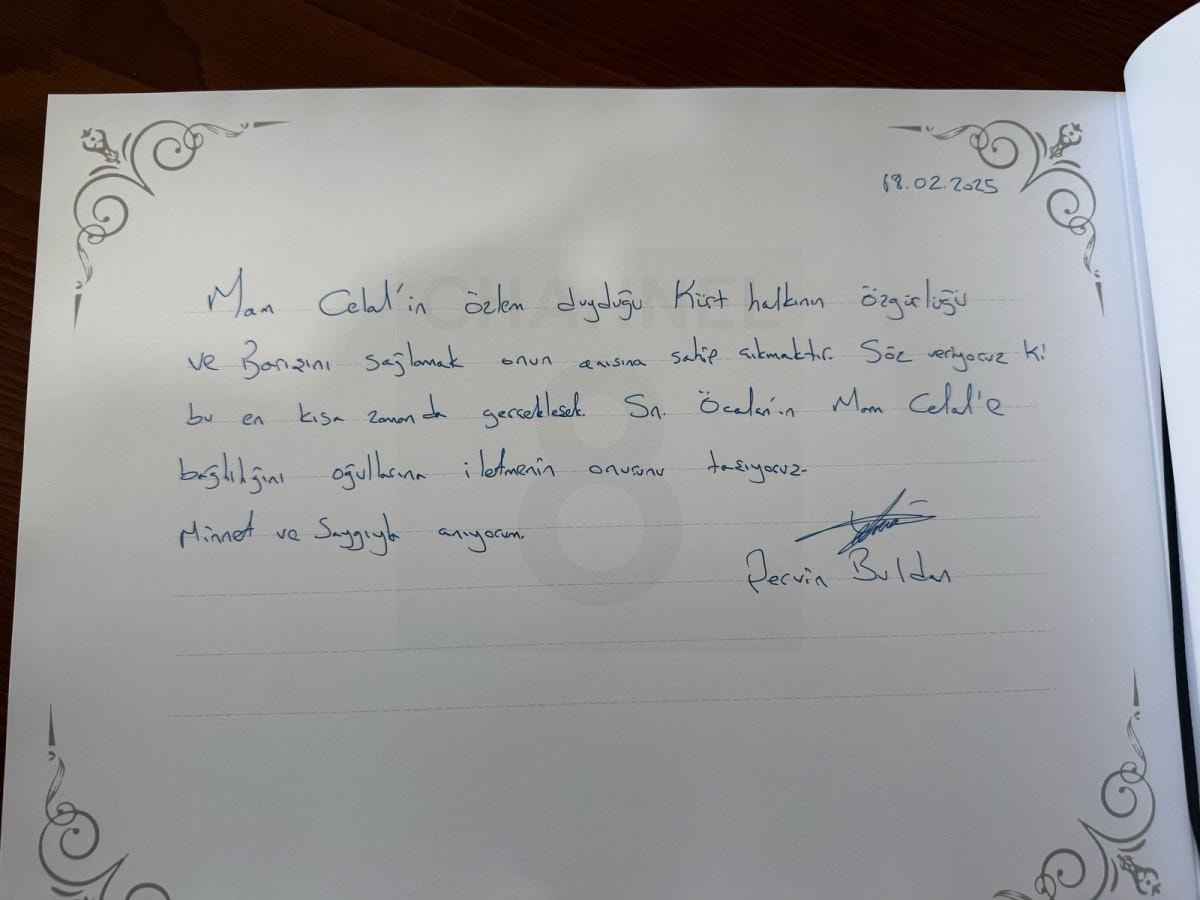 18.02.2025
CHANNEL
8
Mam Celal'in özlem duyduğu Kürt halkının özgürlüğü
ve Barışını sağlamak onun anısına sahip çıkmaktır. Söz veriyoruz ki
bu en kısa zamanda gerçekleşecek. Sn. Öcalan'ın Mam Celal'e
bağlılığını oğullarına iletmenin onurunu taşıyoruz.
Minnet ve Saygıyla anıyorum.
Pervin Buldan